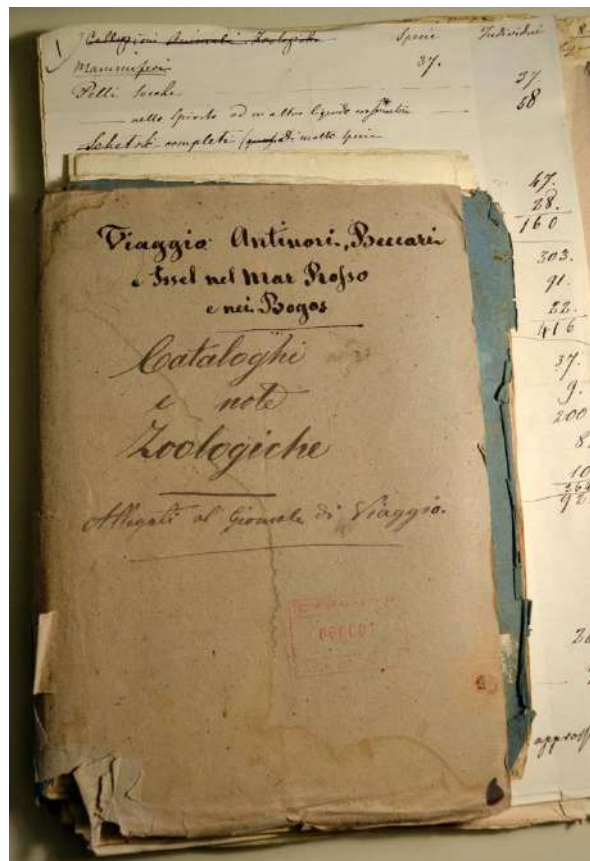 1) Collezioni Animali Zoologiche Specie Individui
Mammiferi 37. 37
Pelli Secche 58
nello Spirito od in altro liquido
Scheletri completi di molte specie
47.
28.
160
303.
91.
22.
416
37.
9.
200
8
10
264
92
Viaggio Antinori, Beccari
e Issel nel Mar Rosso
e nei Bogos
Cataloghi
e note
Zoologiche
Allegati al Giornale di Viaggio.